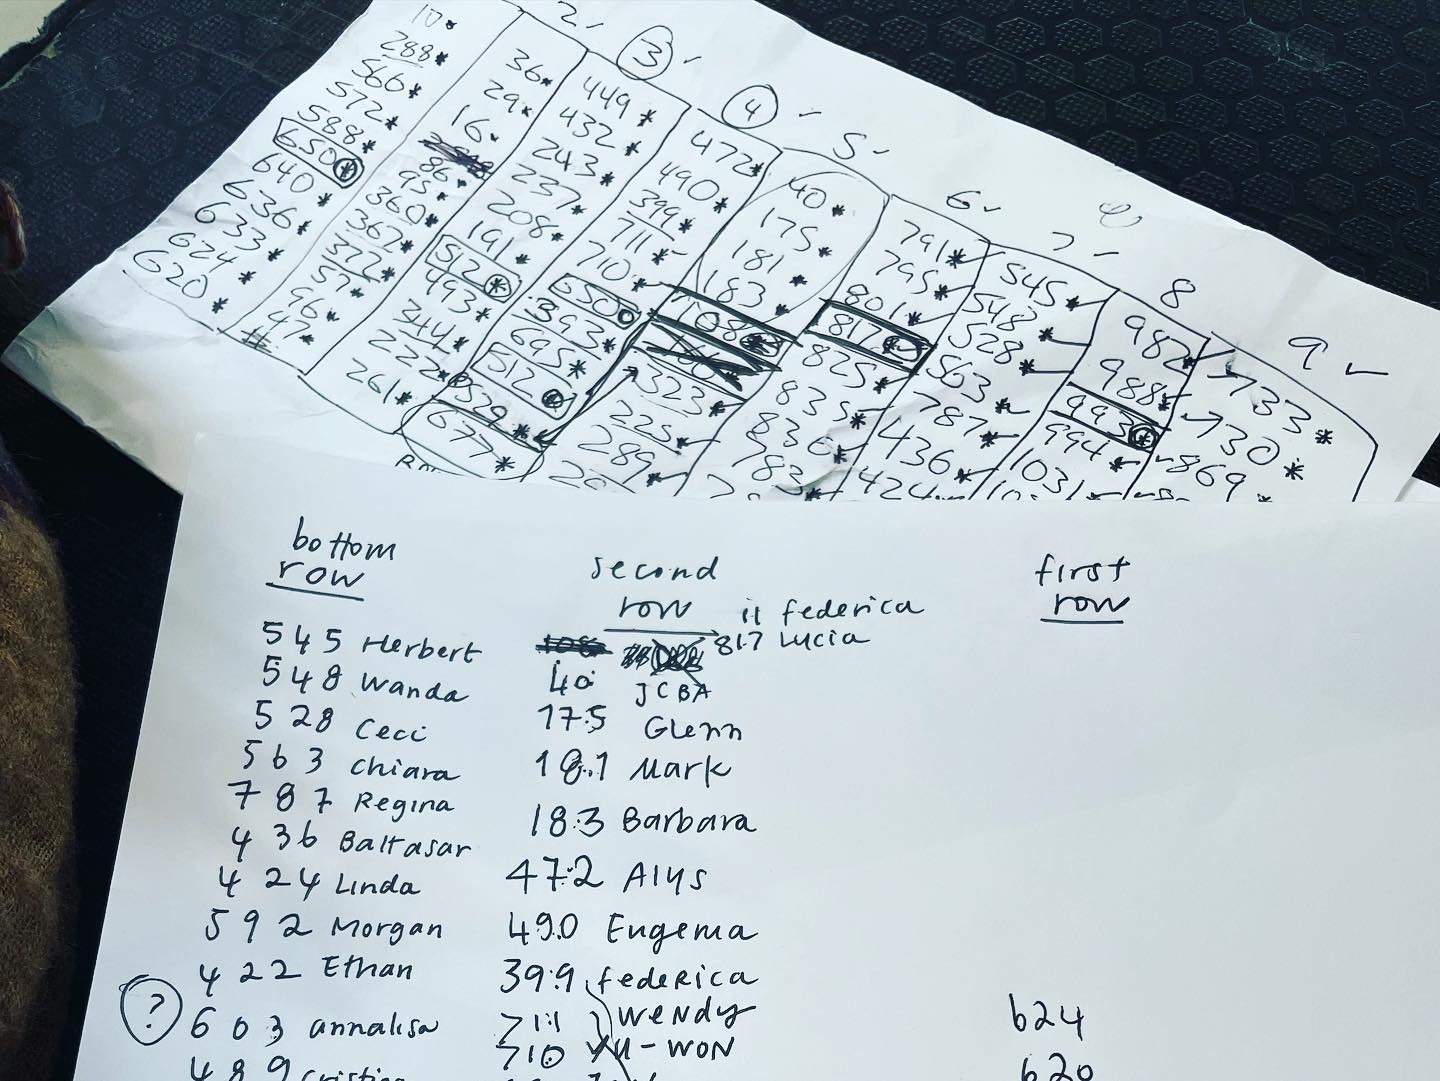 2 ③ ④ 5 6 7 8 9
10*
288*
566*
572*
588*
650*
640*
636*
633*
624*
620*
36*
29*
16
86*
95*
360*
367*
372*
57*
96*
47*
449*
432*
243*
237*
208*
191*
512*
493*
344*
222*
261*
472*
490*
399*
711*
710*
650
393*
695*
512*
529*
677*
40*
175*
181*
183
108*
323*
225*
289*
791*
795*
801*
817*
825*
835*
836*
783*
545*
548*
528*
563*
787*
436*
424
982*
988*
993*
994*
1031*
733*
730*
869*
bottom row
545 Herbert
548 Wanda
528 Ceci
563 Chiara
787 Regina
436 Baltasar
424 Linda
592 Morgan
422 Ethan
? 603 annalisa
489 cristina
second row
11 federica
817 Lucia
40 JCBA
175 Glenn
181 Mark
183 Barbara
472 Alys
490 Eugenia
399 federica
711 Wendy
710 YU-WON
first row
624
620